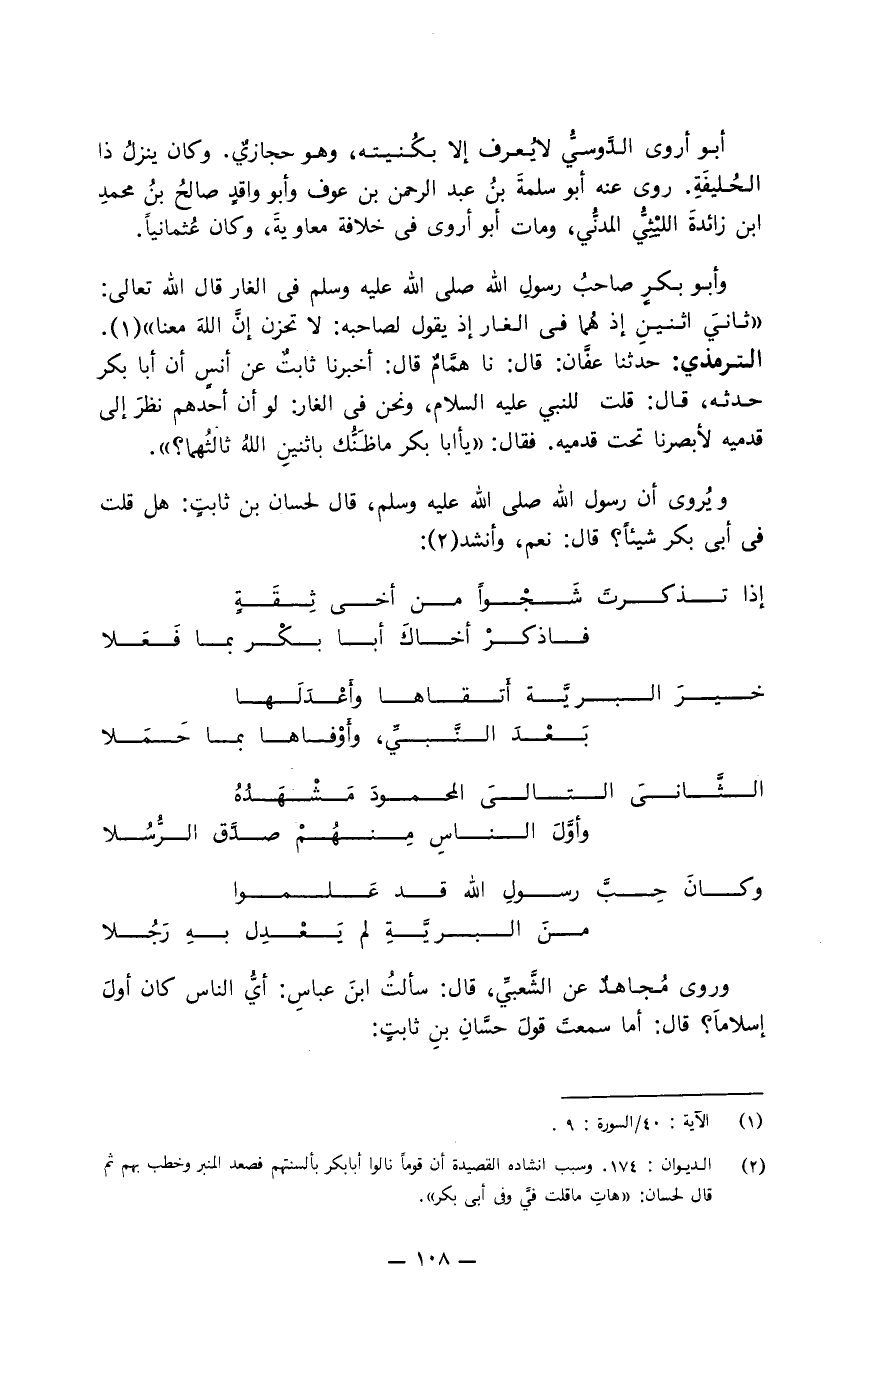 أبو أروى الدَّوسيُّ لايُعرف إلا بكُنيته، وهو حجازيٌ. وكان ينزلُ ذا
الحُليفَةِ. روى عنه أبو سلمةَ بنُ عبد الرحمن بن عوف وأبو واقدٍ صالحُ بنُ محمدِ
ابن زائدةَ الليْثِيُّ المدنُّي، ومات أبو أروى فى خلافة معاويةَ، وكان عُثمانياً.
وأبو بكرٍ صاحبُ رسولِ الله صلى الله عليه وسلم فى الغار قال الله تعالى:
«ثانيَ اثنينِ إذ هُما فى الغارِ إذ يقول لصاحبه: لا تحزن إنَّ اللهَ معنا»(١).
الترمذي: حدثنا عفَّان: قال: نا همَّامٌ قال: أخبرنا ثابتٌ عن أنسٍ أن أبا بكر
حدثه، قال: قلت للنبي عليه السلام، ونحن فى الغار: لو أن أحدهم نظرَ إلى
قدميه لأبصرنا تحت قدميه. فقال: «ياأبا بكر ماظنُّك باثنينِ اللهُ ثالثُهما؟».
ويُروى أن رسول الله صلى الله عليه وسلم، قال لحسان بن ثابتٍ: هل قلت
فى أبى بكر شيئاً؟ قال: نعم، وأنشد(٢):
إذا تذكرتَ شَجْواً من أخى ثِقَةٍ
فاذكرْ أخاكَ أبا بكْر بما فَعَلا
خيرَ البريَّة أَتقاها وأَعْدَلَها
بَعْدَ النَّبيِّ، وأَوْفاها بما حَمَلا
الثَّانىَ التالىَ المحمودَ مَشْهَدُهُ
وأوَّلَ الناسِ مِنهُمْ صدَّق الرُّسُلا
وكانَ حِبَّ رسولِ الله قد عَلموا
منَ البريَّةِ لم يَعْدِل بهِ رَجُلا
وروى مُجاهدٌ عن الشَّعبيِّ، قال: سألتُ ابنَ عباسٍ: أيُّ الناس كان أولَ
إسلاماً؟ قال: أما سمعتَ قولَ حسَّانِ بنِ ثابتٍ:
(١) الآية : ٤٠/السورة : ٩ .
(٢) الديوان : ١٧٤. وسبب انشاده القصيدة أن قوماً نالوا أبابكر بألسنتهم فصعد المنبر وخطب بهم ثم
قال لحسان: «هاتِ ماقلت فيَّ وفى أبى بكر».
— ١٠٨ —